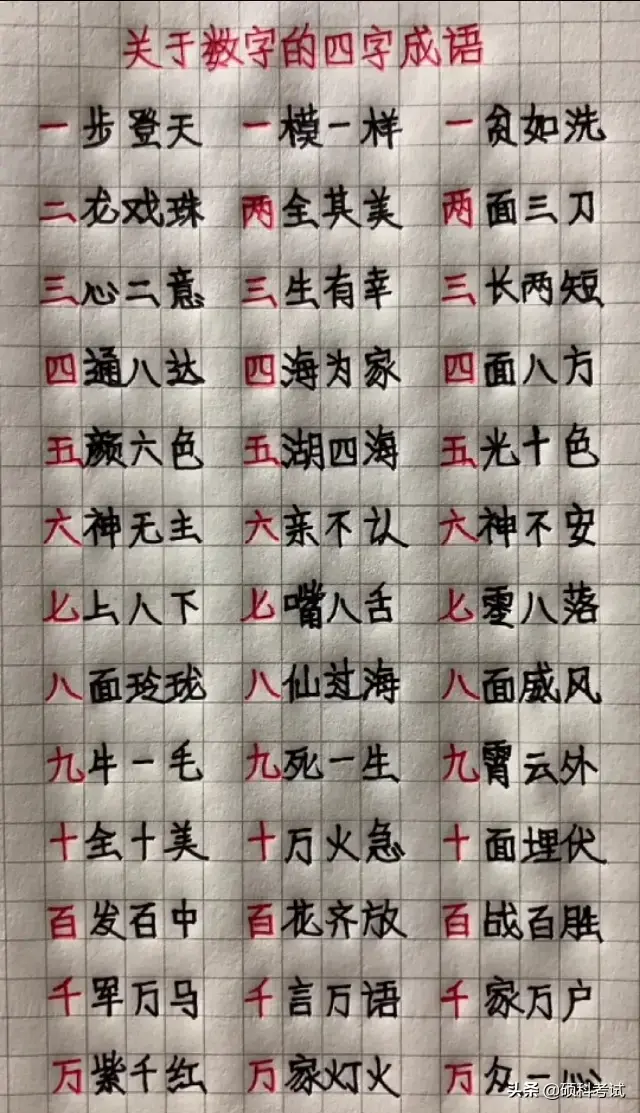 关于数字的四字成语
一步登天 一模一样 一贫如洗
二龙戏珠 两全其美 两面三刀
三心二意 三生有幸 三长两短
四通八达 四海为家 四面八方
五颜六色 五湖四海 五光十色
六神无主 六亲不认 六神不安
七上八下 七嘴八舌 七零八落
八面玲珑 八仙过海 八面威风
九牛一毛 九死一生 九霄云外
十全十美 十万火急 十面埋伏
百发百中 百花齐放 百战百胜
千军万马 千言万语 千家万户
万紫千红 万家灯火 万众一心
头条 @硕科考试